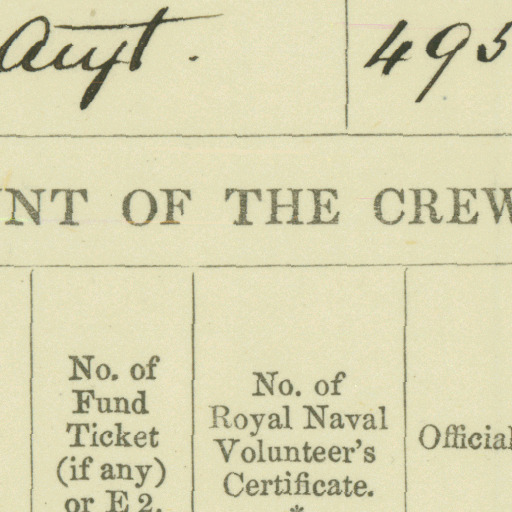 495
NT OF THE CREW
No. of
Fund
Ticket
(if any)
or E 2.
No. of
Royal Naval
Volunteer's
Certificate.
*
Official